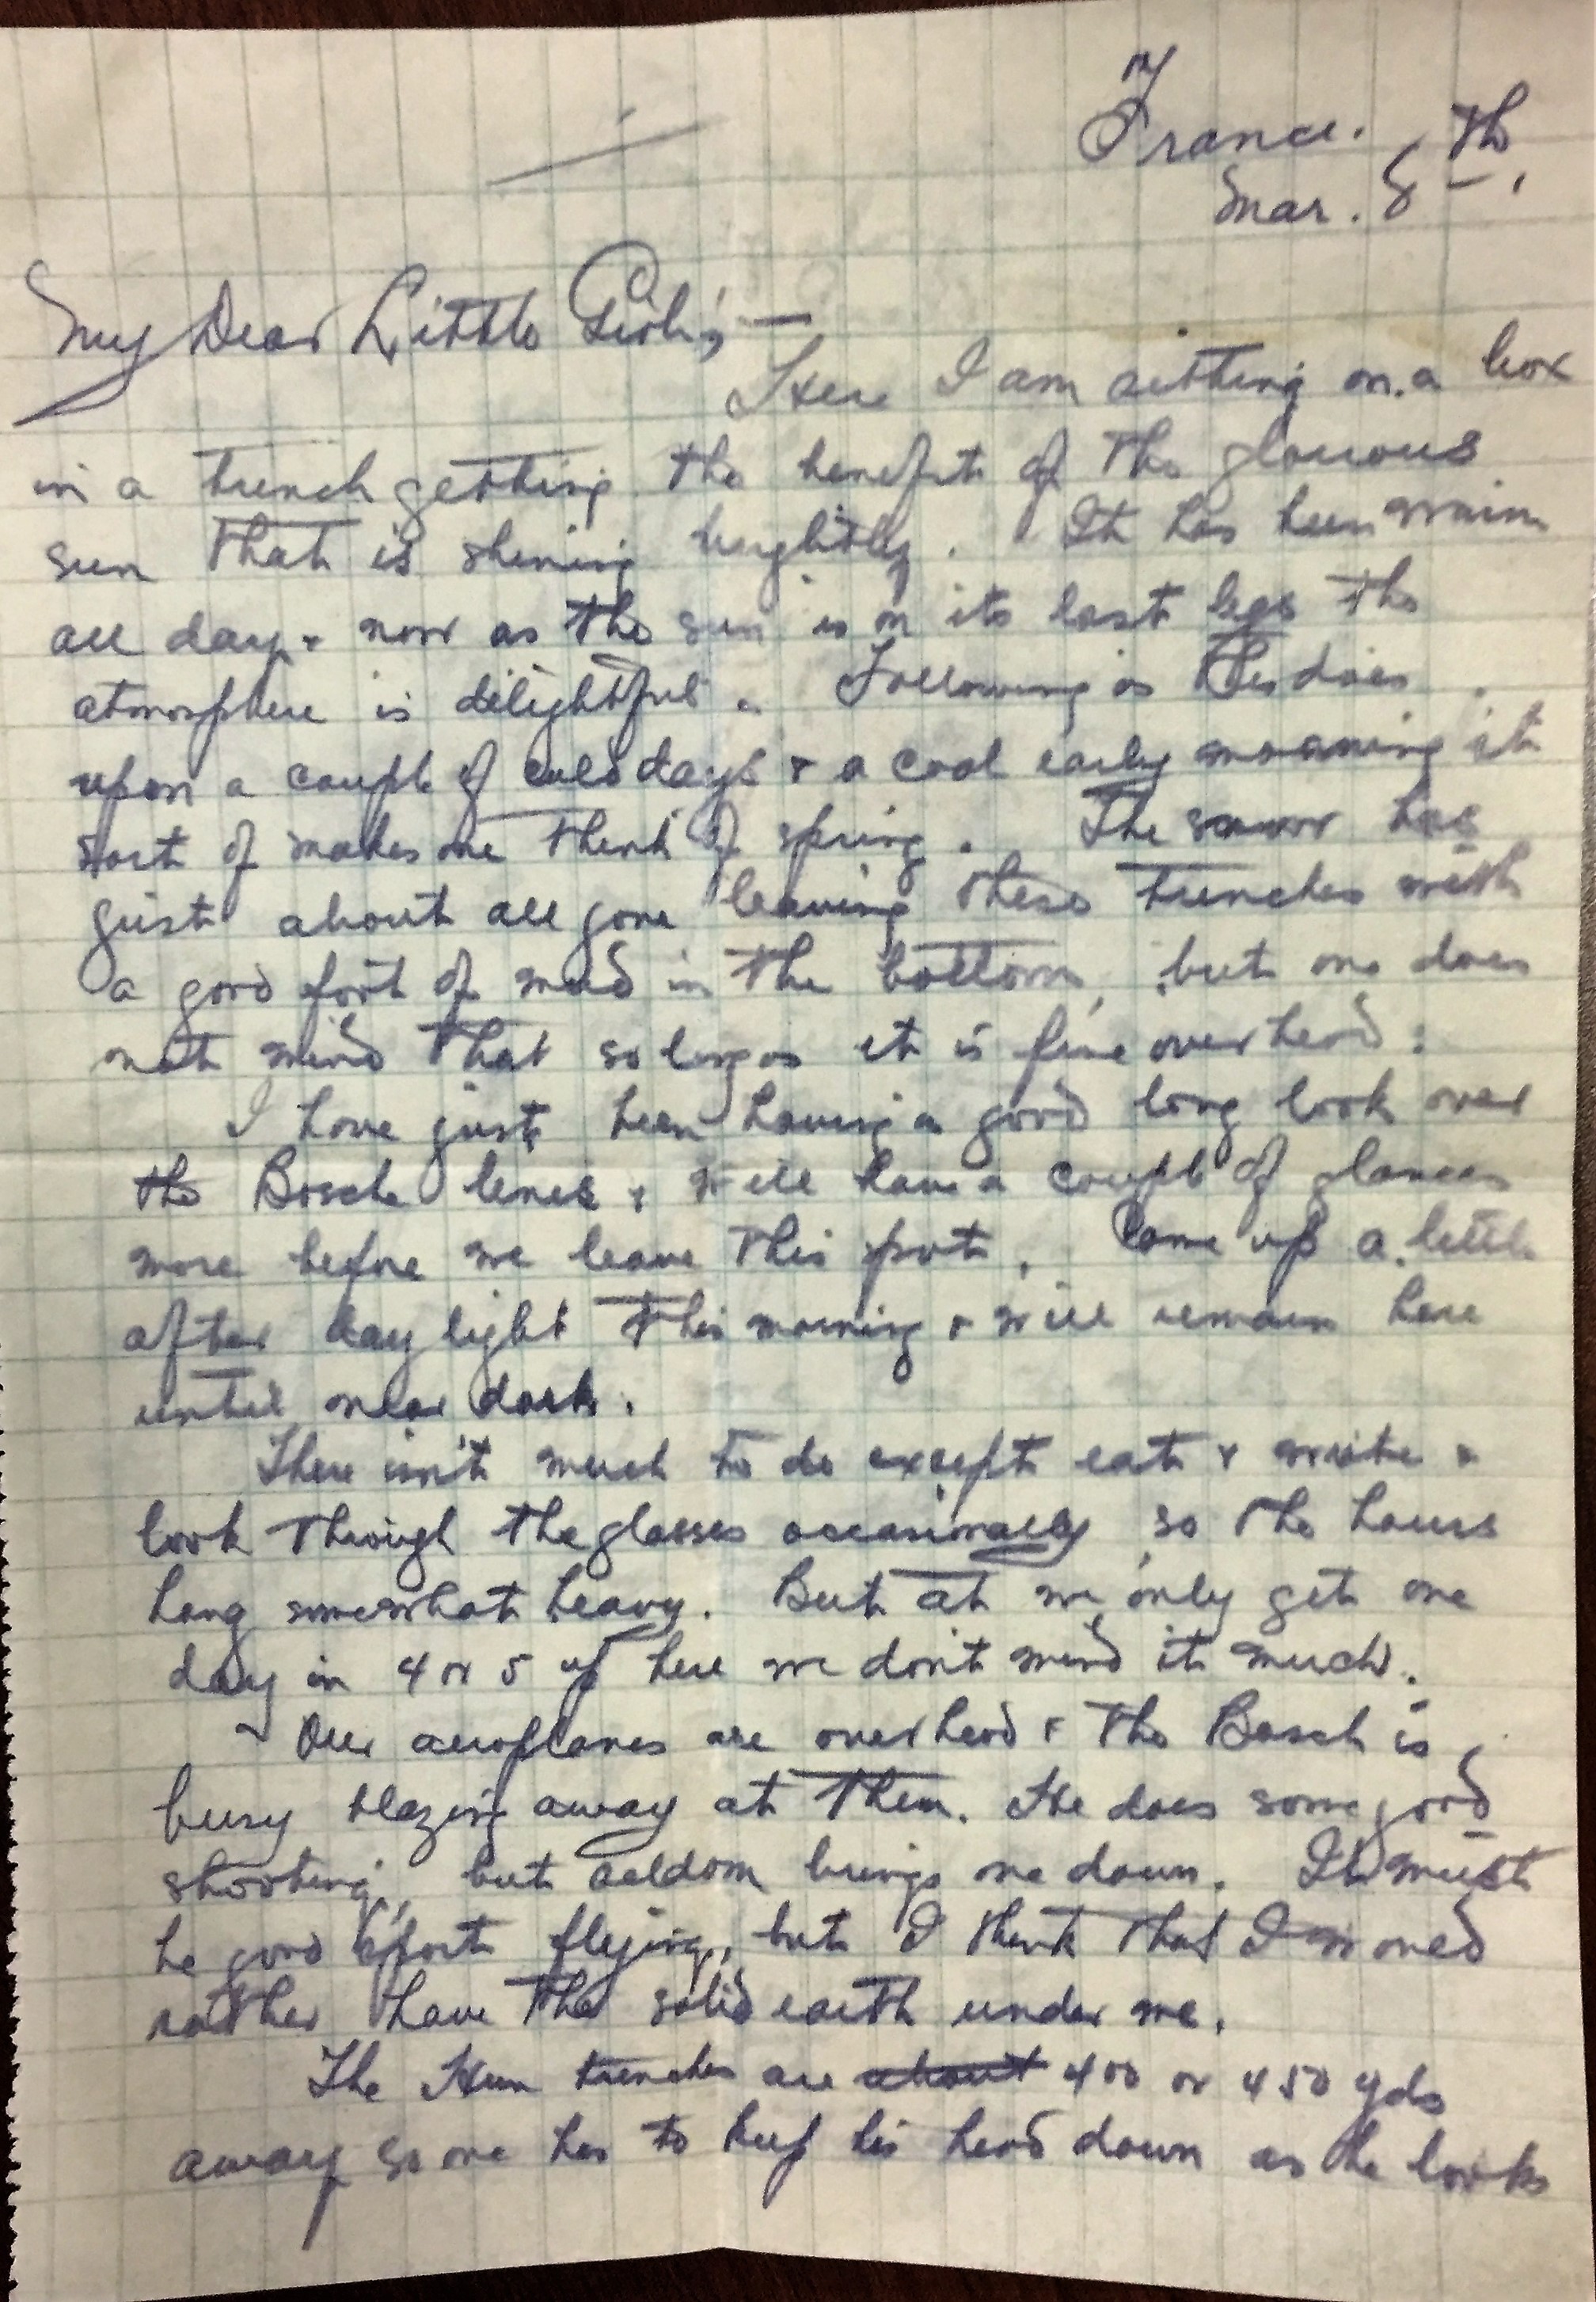 France.
Mar. 8th.
My Dear Little Girl;—
Here I am sitting on a box
in a trench getting the benefit of the glorious
sun that is shining brightly. It has been warm
all day & now as the sun is on its last legs the
atmosphere is delightful. Following as this does
upon a couple of cold days & a cool early morning it
sort of makes one think of spring. The snow has
just about all gone leaving these trenches with
a good foot of mud in the bottom, but one does
not mind that so long as it is fine overhead.
I have just been having a good long look over
the Bosche lines & will have a couple of glances
more before we leave this post. Came up a little
after daylight this morning & will remain here
until near dark.
There isn't much to do except eat & write &
look through the glasses occasionally, so the hours
hang somewhat heavy. But at we only get one
day in 4 or 5 up here we don't mind it much.
Our aeroplanes are overhead & the Bosch is
busy blazing away at them. He does some good
shooting, but seldom brings one down. It must
be good sport flying, but I think that I would
rather have the solid earth under me.
The Hun trenches are about 400 or 450 yds
away so one has to keep his head down as he looks